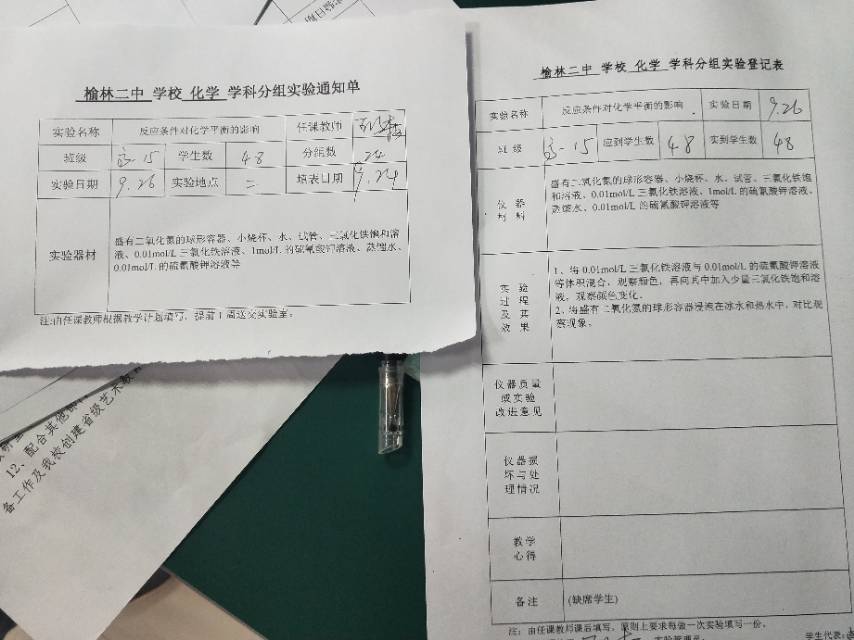 榆林二中 学校 化学 学科分组实验通知单
实验名称 反应条件对化学平衡的影响 任课教师
班级 高-15 学生数 48 分组数 24
实验日期 9.26 实验地点 二 填表日期 9.24
实验器材 盛有二氧化氮的球形容器、小烧杯、水、试管、三氯化铁饱和溶
液、0.01mol/L 三氯化铁溶液、1mol/L 的硫氰酸钾溶液、蒸馏水、
0.01mol/L 的硫氰酸钾溶液等
注:由任课教师根据教学计划填写，提前 1 周送交实验室。
12、配合其他
备工作及我校创建省级艺术教
榆林二中 学校 化学 学科分组实验登记表
实验名称 反应条件对化学平衡的影响 实验日期 9.26
班 级 高-15 应到学生数 48 实到学生数 48
仪 器
材 料
盛有二氧化氮的球形容器、小烧杯、水、试管、三氯化铁饱
和溶液、0.01mol/L 三氯化铁溶液、1mol/L 的硫氰酸钾溶液、
蒸馏水、0.01mol/L 的硫氰酸钾溶液等
实 验
过 程
及 其
效 果
1、将 0.01mol/L 三氯化铁溶液与 0.01mol/L 的硫氰酸钾溶液
等体积混合，观察颜色，再向其中加入少量三氯化铁饱和溶
液，观察颜色变化。
2、将盛有二氧化氮的球形容器浸泡在冰水和热水中，对比观
察现象。
仪器质量
或实验
改进意见
仪器损
坏与处
理情况
教学
心得
备注 (缺席学生)
注：由任课教师课后填写，原则上要求每做一次实验填写一份。
学生代表: